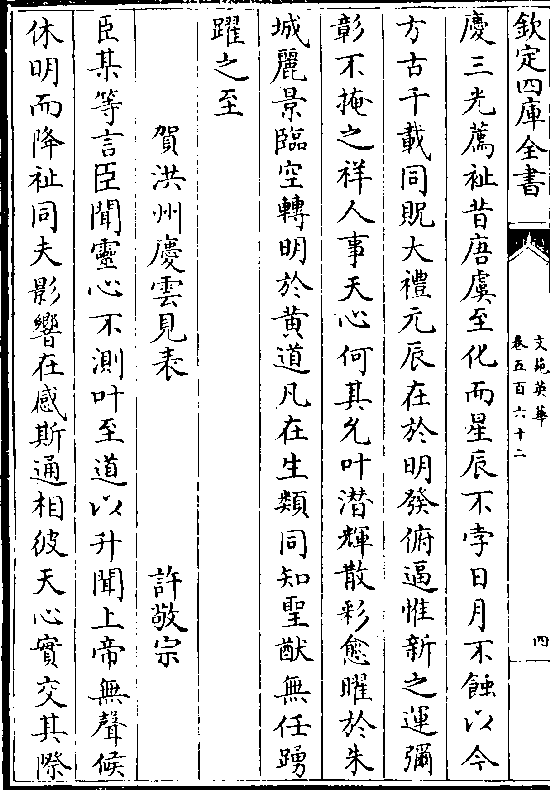 欽定四庫全書
文苑英華
卷五百六十二
四
慶三光薦祉昔唐虞至化而星辰不孛日月不蝕以今
方古千載同貺大禮元辰在於明發俯逼惟新之運彌
彰不掩之祥人事天心何其允叶潜輝散彩愈曜於朱
城麗景臨空轉明於黄道凡在生類同知聖猷無任踴
躍之至
賀洪州慶雲見表 許敬宗
臣某等言臣聞靈心不測叶至道以升聞上帝無聲候
休明而降祉同夫影響在感斯通相彼天心實交其際